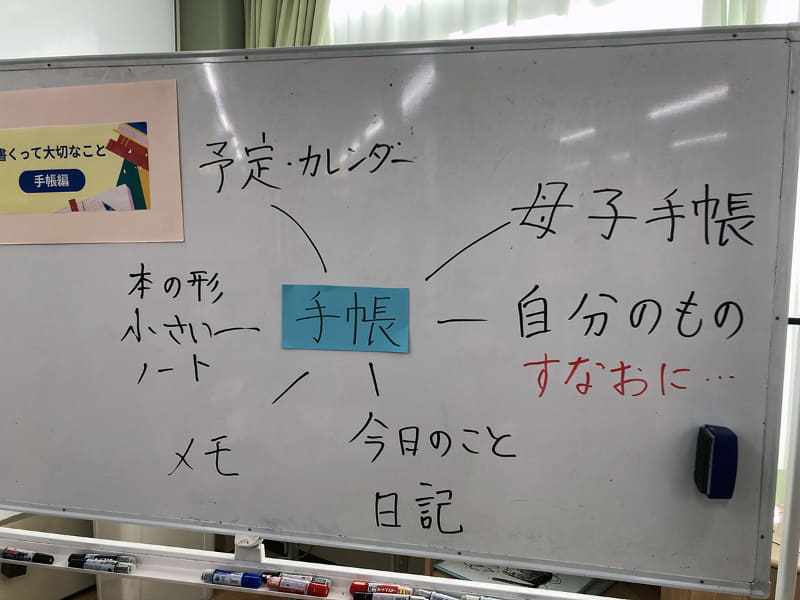 書くって大切なこと
手帳編
予定・カレンダー
母子手帳
本の形
小さい
ノート
手帳
自分のもの
すなおに…
メモ
今日のこと
日記